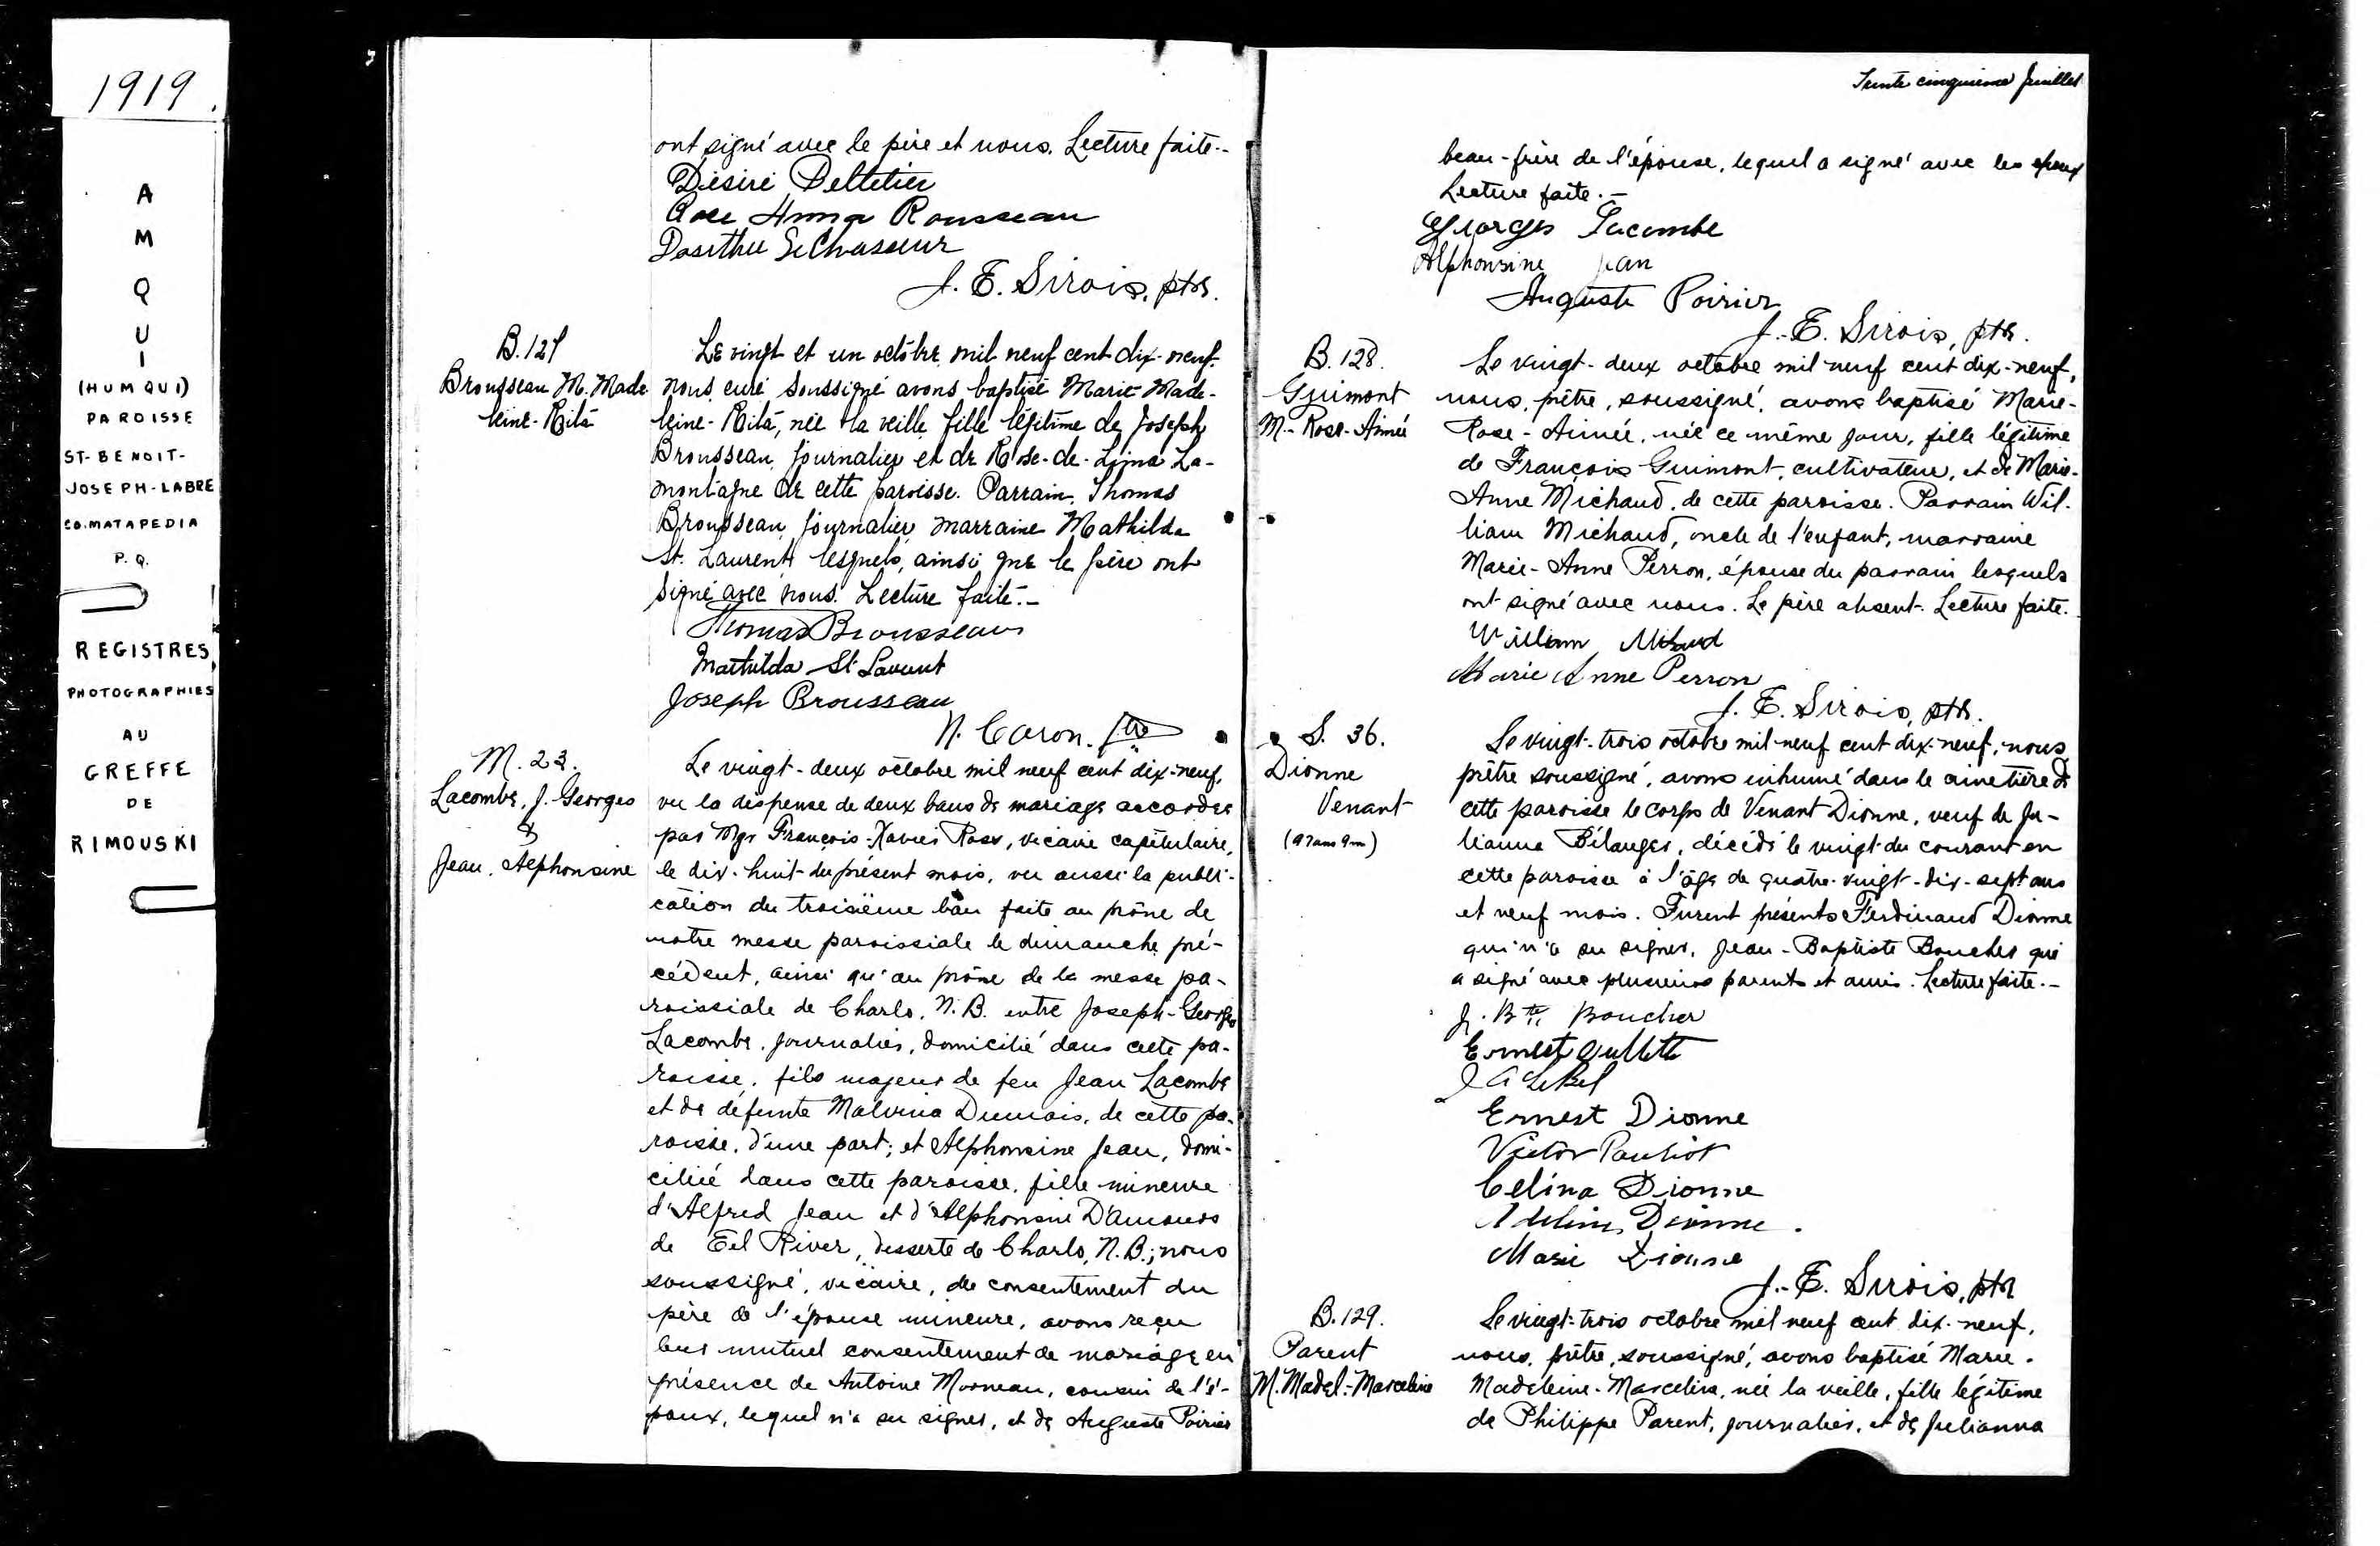 1919.
A
M
Q
U
I
(HUMQUI)
PAROISSE
ST-BENOIT-
JOSEPH-LABRE
CO. MATAPEDIA
P. Q.
REGISTRES
PHOTOGRAPHIES
AU
GREFFE
DE
RIMOUSKI
ont signé avec le père et nous. Lecture faite.-
Désiré Pelletier
Rose Anna Rousseau
Dosithée LeChasseur
J. E. Sirois, ptr.
B. 127
Brousseau M. Made
leine-Rita
Le vingt et un octobre mil neuf cent dix-neuf
nous, curé soussigné avons baptisé Marie-Made-
leine-Rita, née la veille, fille légitime de Joseph
Brousseau, journalier et de Rose-de-Lima La-
montagne de cette paroisse. Parrain, Thomas
Brousseau, journalier, marraine Mathilda
St. Laurent lesquels, ainsi que le père ont
signé avec nous. Lecture faite.-
Thomas Brousseau
Mathilda St Laurent
Joseph Brousseau
N. Caron. ptre
M. 23.
Lacombe, J. Georges
&
Jean, Alphonsine
Le vingt-deux octobre mil neuf cent dix-neuf,
vu la dispense de deux bans de mariage accordée
par Mgr François-Xavier Ross, vicaire capitulaire,
le dix-huit du présent mois, vu aussi la publi-
cation du troisième ban faite au prône de
notre messe paroissiale le dimanche pré-
cédent, ainsi qu'au prône de la messe pa-
roissiale de Charlo, N.B. entre Joseph-Georges
Lacombe, journalier, domicilié dans cette pa-
roisse, fils majeur de feu Jean Lacombe
et de défunte Malvina Dumais, de cette pa-
roisse, d'une part; et Alphonsine Jean, domi-
ciliée dans cette paroisse, fille mineure
d'Alfred Jean et d'Alphonsine D'Amours
de Eel River, desserte de Charlo, N.B.; nous
soussigné, vicaire, du consentement du
père de l'épouse mineure, avons reçu
leur mutuel consentement de mariage en
présence de Antoine Morneau, cousin de l'é-
poux, lequel n'a su signer, et de Auguste Poirier
Trente cinquième feuillet
beau-frère de l'épouse, lequel a signé avec les époux
Lecture faite.-
Georges Lacombe
Alphonsine Jean
Auguste Poirier
J.-E. Sirois, ptr.
B. 128.
Guimont
M.-Rose-Aimée
Le vingt-deux octobre mil neuf cent dix-neuf,
nous, prêtre, soussigné, avons baptisé Marie-
Rose-Aimée, née ce même jour, fille légitime
de François Guimont, cultivateur, et de Marie-
Anne Michaud, de cette paroisse. Parrain Wil-
liam Michaud, oncle de l'enfant, marraine
Marie-Anne Perron, épouse du parrain lesquels
ont signé avec nous. Le père absent. Lecture faite.
William Michaud
Marie Anne Perron
J. E. Sirois, ptr.
S. 36.
Dionne
Venant
(97 ans 9 m)
Le vingt-trois octobre mil neuf cent dix-neuf, nous
prêtre soussigné, avons inhumé dans le cimetière de
cette paroisse le corps de Venant Dionne, veuf de Ju-
lianna Bélanger, décédé le vingt du courant en
cette paroisse à l'âge de quatre-vingt-dix-sept ans
et neuf mois. Furent présents Ferdinand Dionne
qui n'a su signer, Jean-Baptiste Boucher qui
a signé avec plusieurs parents et amis. Lecture faite.-
J. Bte Boucher
Ernest Oullette
J A LeBel
Ernest Dionne
Victor Pouliot
Celina Dionne
Adelina Dionne.
Marie Dionne
J.-E. Sirois, ptr
B. 129.
Parent
M. Madel.-Marceline
Le vingt-trois octobre mil neuf cent dix-neuf,
nous, prêtre, soussigné, avons baptisé Marie-
Madeleine-Marceline, née la veille, fille légitime
de Philippe Parent, journalier, et de Julianna